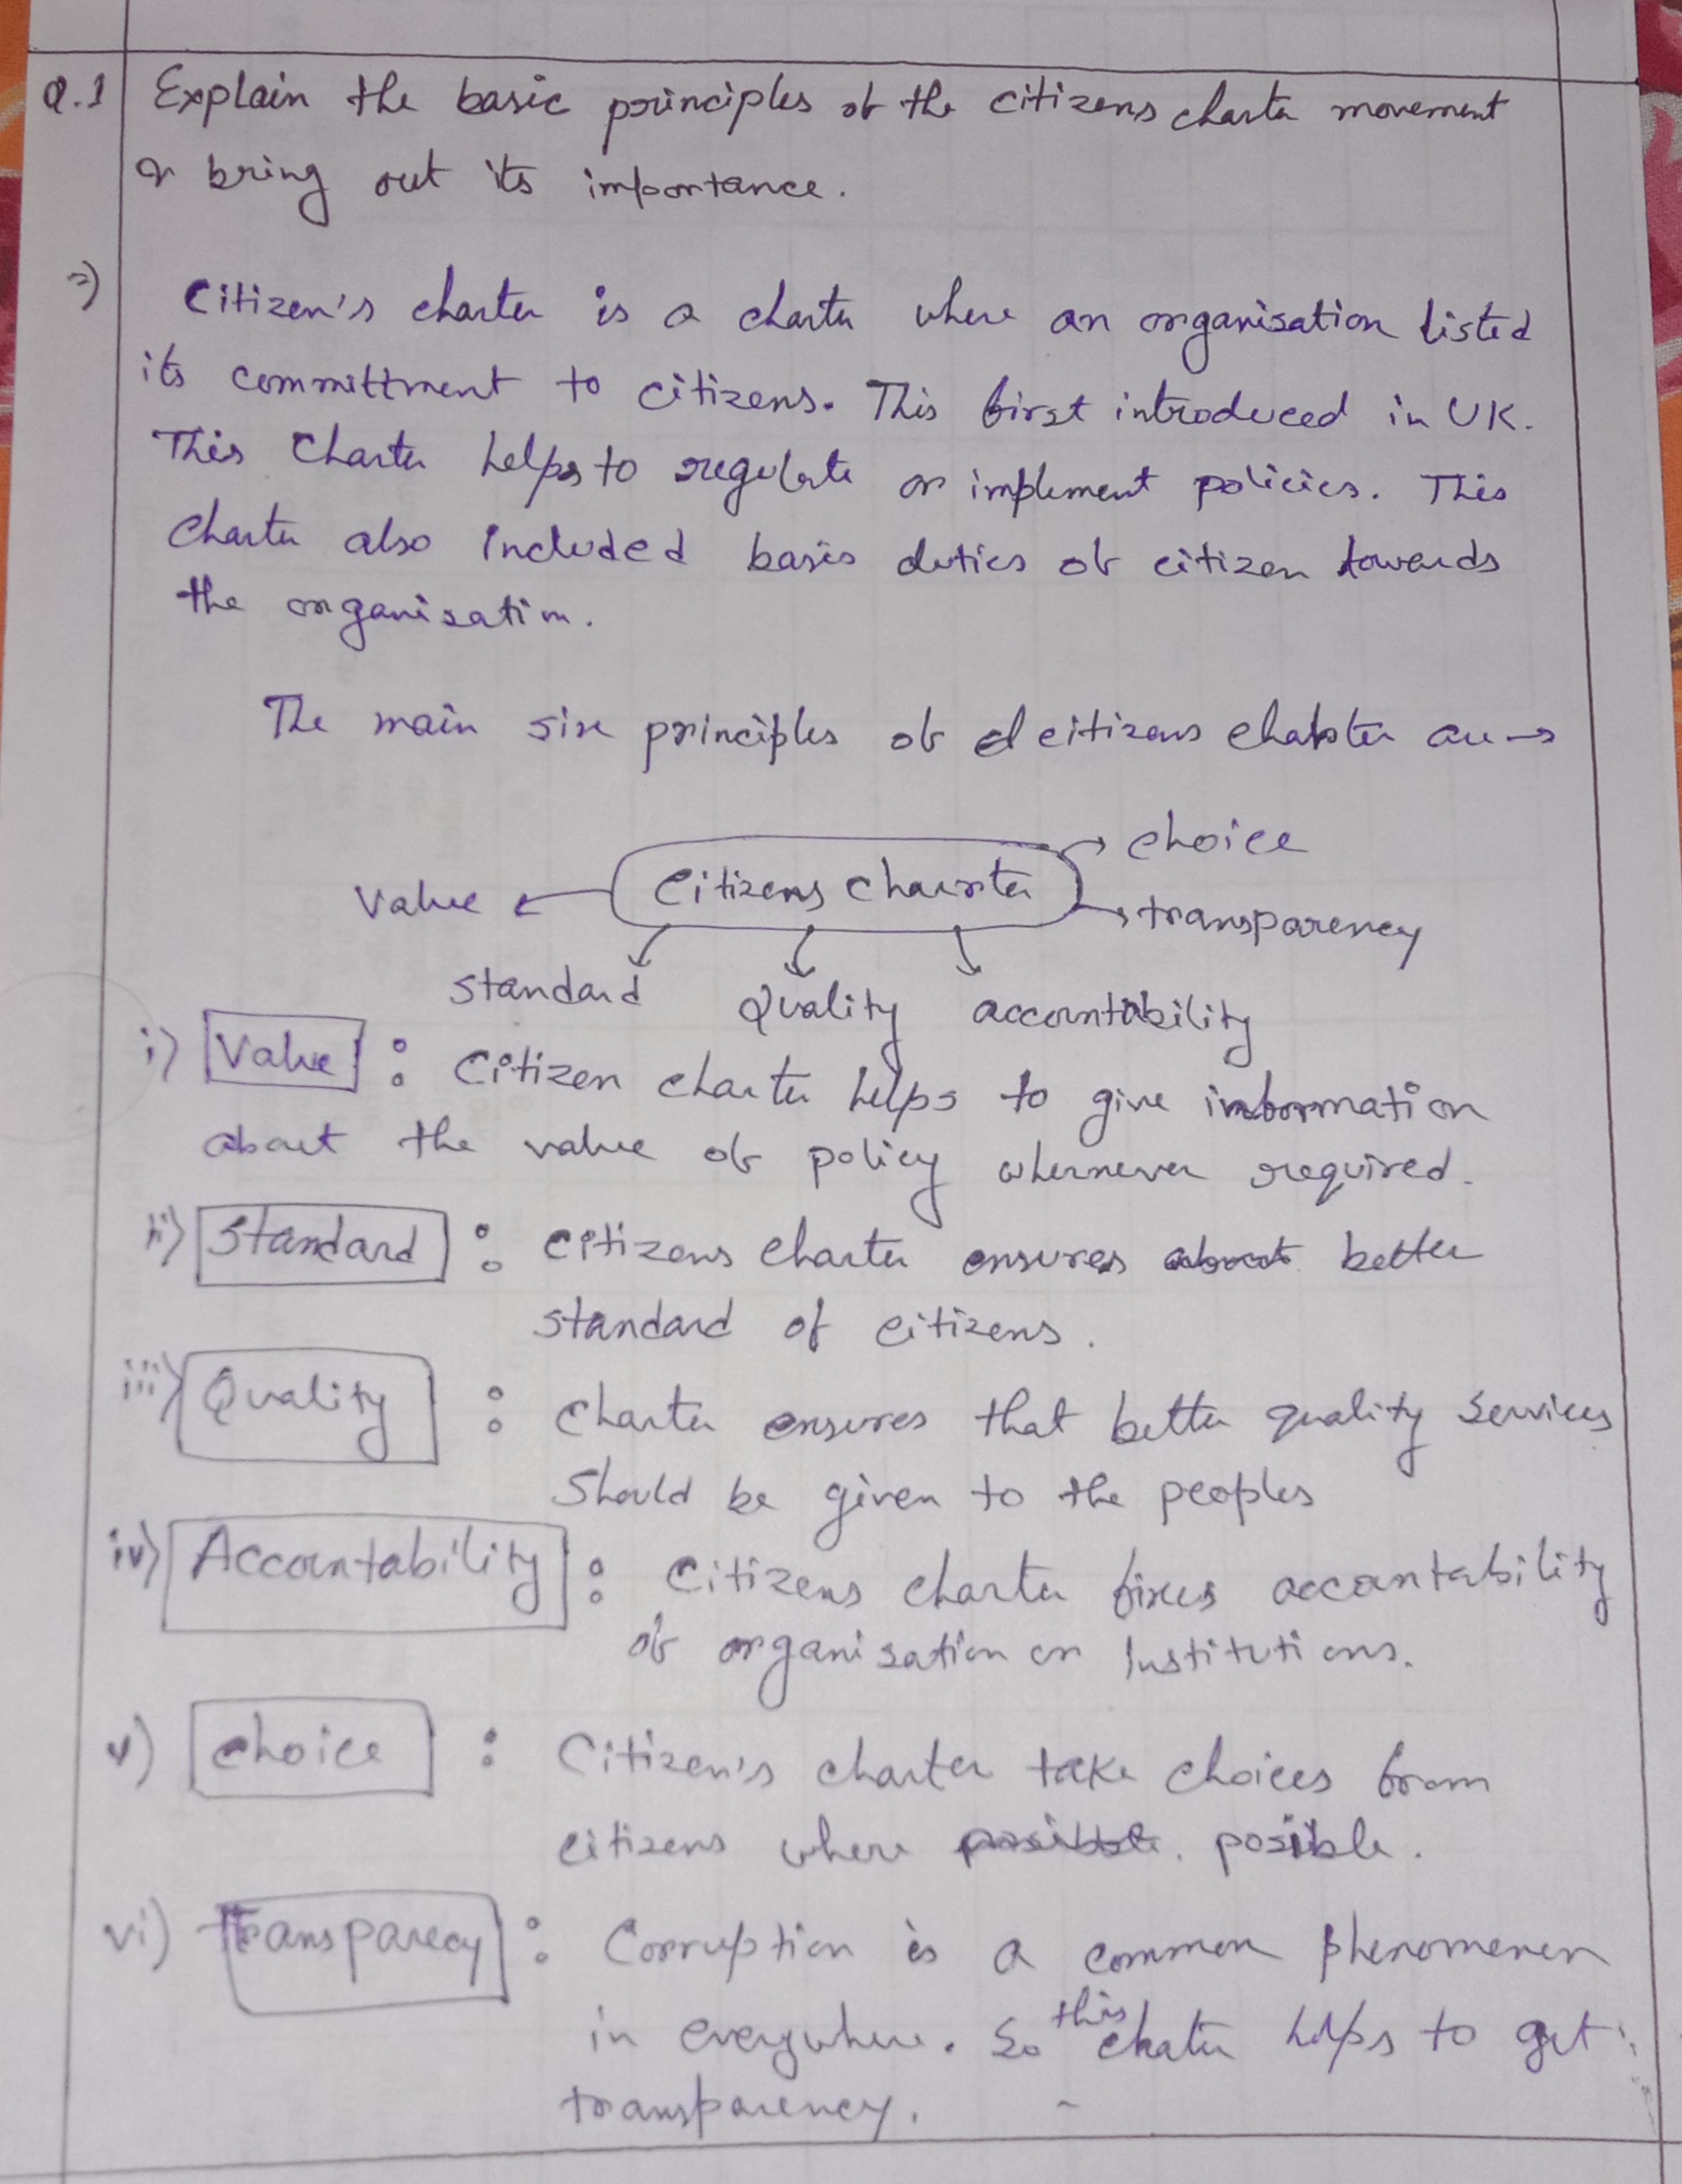 Q.1 Explain the basic principles of the citizens charter movement
& bring out its importance.
⇒) Citizen's charter is a charter where an organisation listed
its committment to citizens. This first introduced in UK.
This Charter helps to regulate or implement policies. This
Charter also included basis duties of citizen towards
the organisation.
The main six principles of citizens charter are →
choice
Citizens charter
Value
transparency
standard
Quality accountability
i) Value : Citizen charter helps to give information
about the value of policy whenever required.
ii) Standard : Citizens charter ensures about better
standard of citizens.
iii) Quality : Charter ensures that better quality services
should be given to the peoples
iv) Accountability : Citizens charter fixes accountability
of organisation or Institutions.
v) choice : Citizen's charter take choices from
citizens where posible.
vi) Transparecy : Corruption is a common phenomenon
in everywhere. So this chater helps to get
transparency.